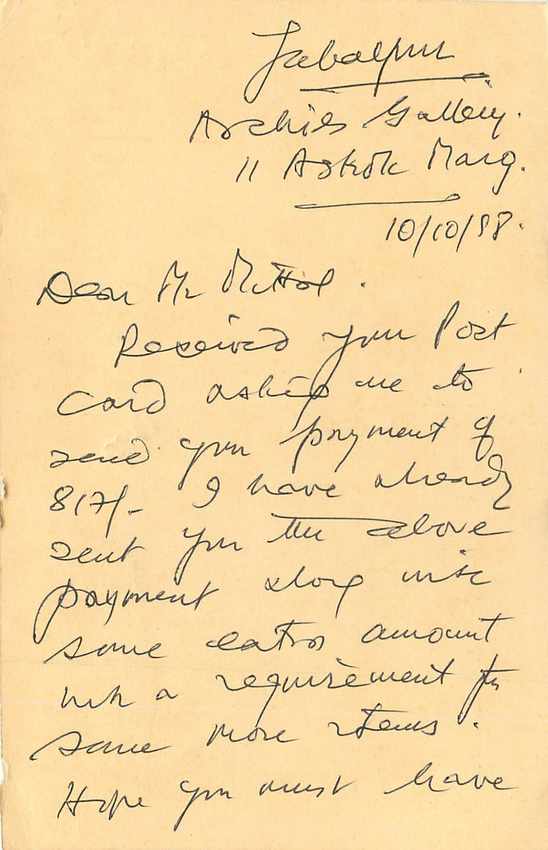 Jabalpur
Archies Gallery.
11 Ashok Marg.
10/10/98.
Dear Mr Mittal.
Received your Post
Card asking me to
send you payment of
817/- I have already
sent you the above
payment along with
some extra amount
with a requirement for
some more items.
Hope you must have